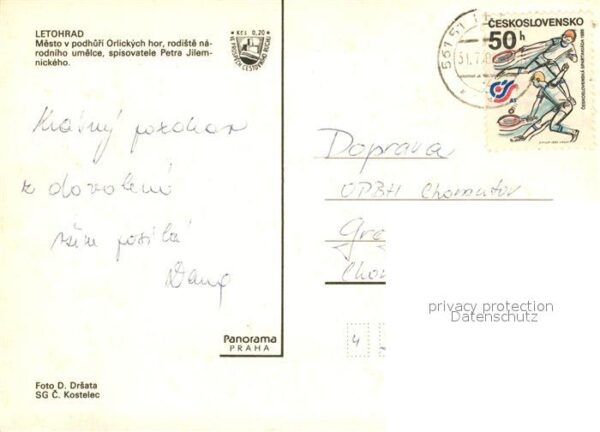 LETOHRAD
Město v podhůří Orlických hor, rodiště ná-
rodního umělce, spisovatele Petra Jilem-
nického.
KČS 0,20
VE PROSPĚCH CESTOVNÍHO RUCHU
561 51
31.7.
ČESKOSLOVENSKO
50 h
ČESKOSLOVENSKÁ SPARTAKIÁDA 1985
Krásný pozdrav
z dovolené
vám posílá
Dana
Doprava
OPBH Chomutov
Gre
Cho
privacy protection
Datenschutz
4
Panorama
PRAHA
Foto D. Dršata
SG Č. Kostelec